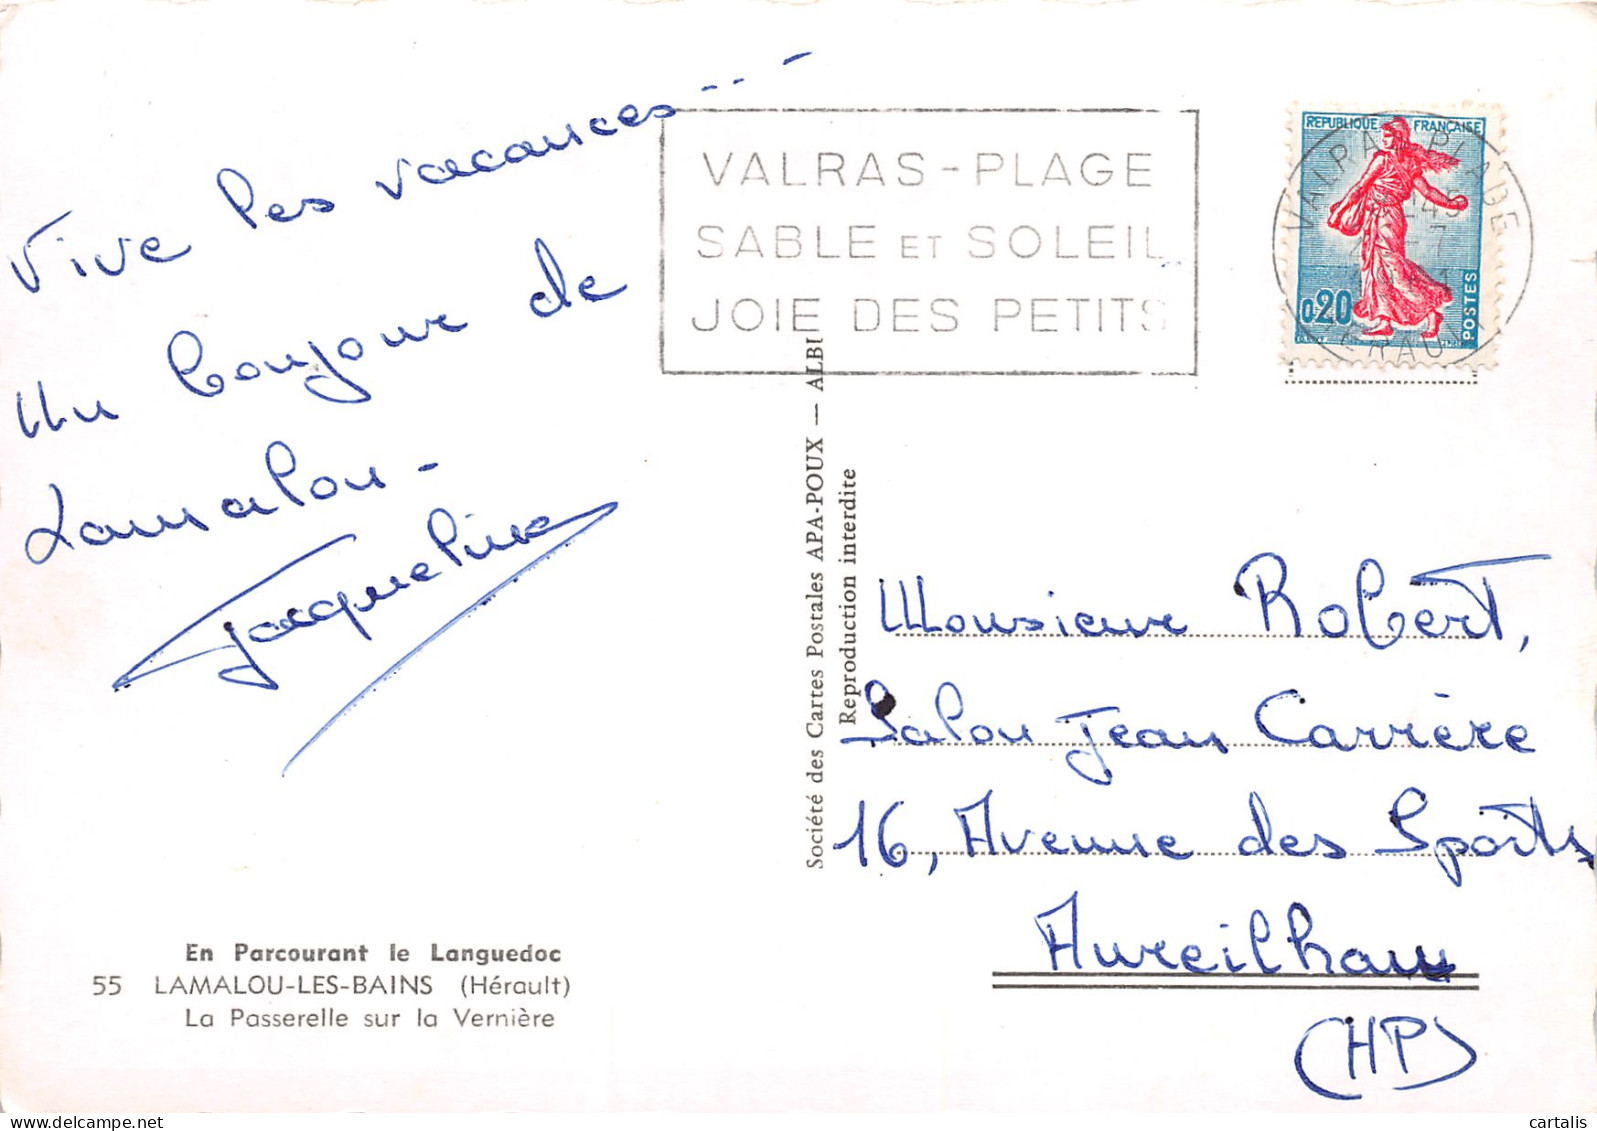 Vive les vacances...-
Un bonjour de
Lamalou-
Jacqueline
VALRAS-PLAGE
SABLE ET SOLEIL
JOIE DES PETITS
REPUBLIQUE FRANÇAISE
0,20
POSTES
VALRAS-PLAGE
HERAULT
Société des Cartes Postales APA-POUX — ALBI
Reproduction interdite
Monsieur Robert,
Salon Jean Carrère
16, Avenue des Sports
Aureilhan
(HP)
En Parcourant le Languedoc
55 LAMALOU-LES-BAINS (Hérault)
La Passerelle sur la Vernière
cartalis